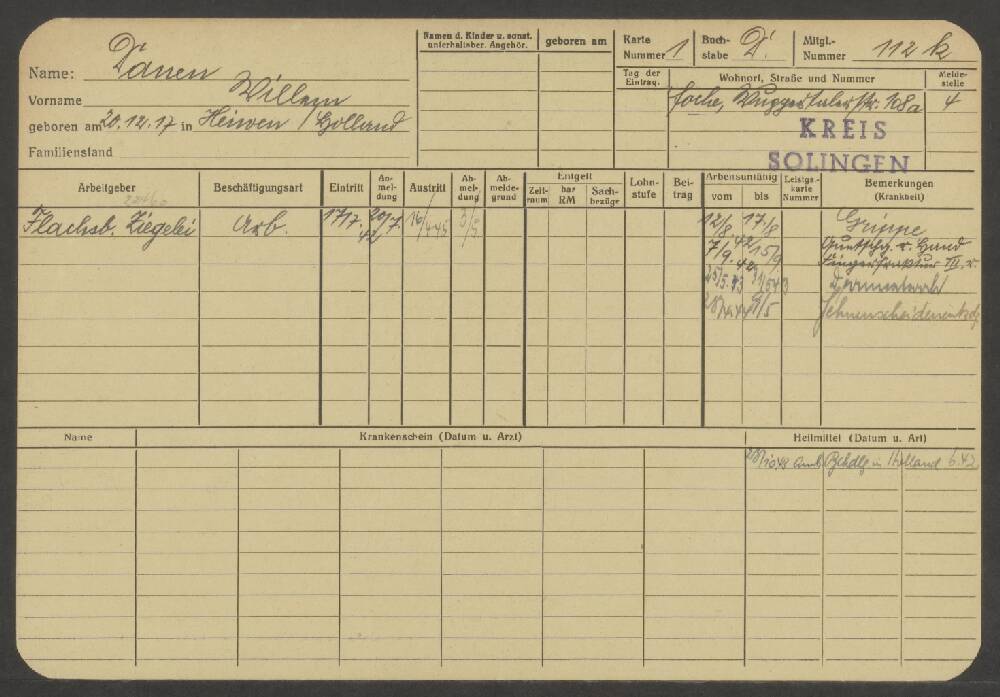 Name: Danen
Vorname Willem
geboren am 20.12.17 in Heiwen / Holland
Familienstand
Namen d. Kinder u. sonst. unterhaltsber. Angehör.
geboren am
Karte Nummer 1
Buchstabe D.
Mitgl.-Nummer 112 k
Tag der Eintrag.
Wohnort, Straße und Nummer
Meldestelle
Foche, Wuppertalerstr. 108a 4
KREIS
SOLINGEN
Arbeitgeber
Beschäftigungsart
Eintritt
An-mel-dung
Austritt
Ab-mel-dung
Ab-melde-grund
Entgelt
Zeit-raum
bar RM
Sach-bezüge
Lohn-stufe
Bei-trag
Arbeitsunfähig
vom
bis
Leistgs.-karte Nummer
Bemerkungen
(Krankheit)
Flachsb. Ziegelei Arb. 17/7. 20/7. 42 16/4 45 3/5.
12/8. 42 17./8 Grippe
7/9. 42 15/9 Quetschg. r. Hand
Fingerfraktur III. r.
25/5. 43
4/5 Sehnenscheidenentzdg
Name
Krankenschein (Datum u. Arzt)
Heilmittel (Datum u. Art)
Behdlg in Holland 6.42